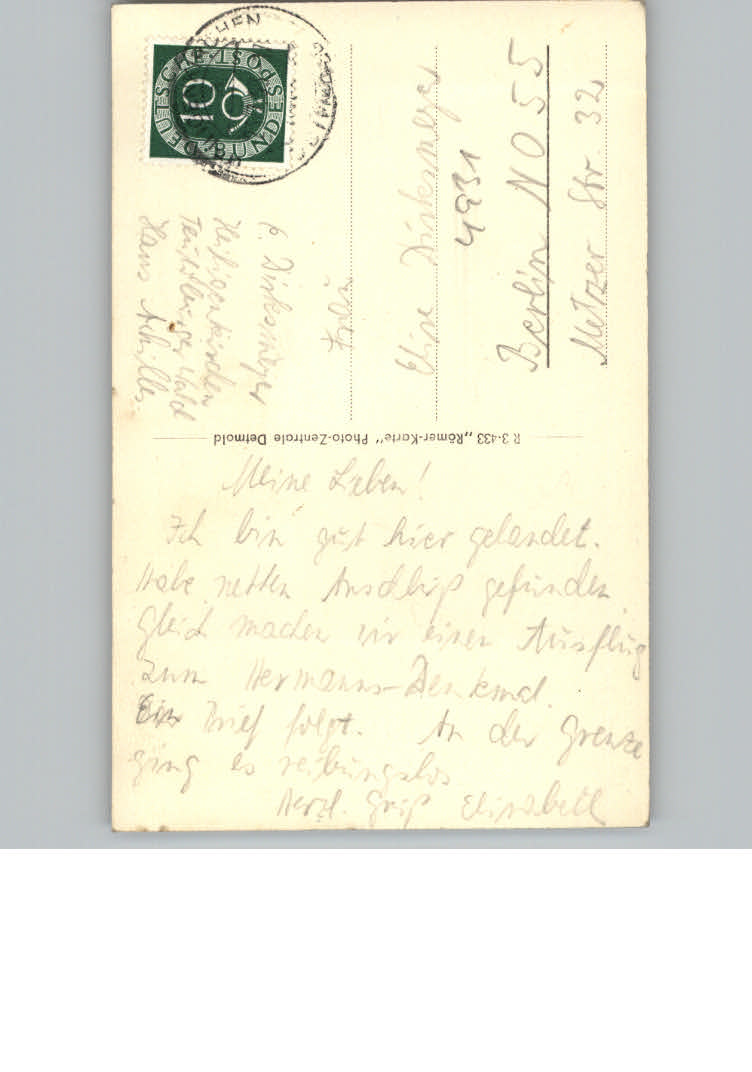 Meine Lieben!
Ich bin gut hier gelandet.
Habe netten Anschluß gefunden
gleich machen wir einen Ausflug
zum Hermanns-Denkmal.
Ein Brief folgt. An der Grenze
ging es reibungslos
Herzl. Gruß Elisabeth
R 3-433 „Römer-Karte" Photo-Zentrale Detmold
DEUTSCHE BUNDESPOST
10
b. Dirksmeyer
Heiligenkirchen
Teutoburger Wald
Haus Achilles
Dirksmeyer
4931
Berlin NO 55
Metzer Str. 32